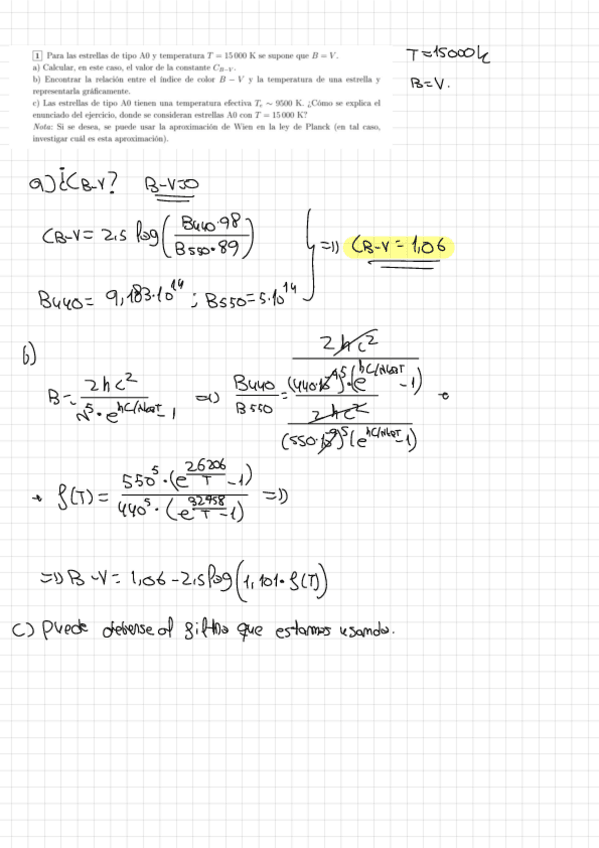 1 Para las estrellas de tipo A0 y temperatura T = 15 000 K se supone que B = V.
a) Calcular, en este caso, el valor de la constante C_{B-V}.
b) Encontrar la relación entre el índice de color B − V y la temperatura de una estrella y
representarla gráficamente.
c) Las estrellas de tipo A0 tienen una temperatura efectiva T_e ∼ 9500 K. ¿Cómo se explica el
enunciado del ejercicio, donde se consideran estrellas A0 con T = 15 000 K?
Nota: Si se desea, se puede usar la aproximación de Wien en la ley de Planck (en tal caso,
investigar cuál es esta aproximación).
T=15000k
B=V.
a) ¿C_{B-V}? B-V=0
C_{B-V} = 2,5 log(B440·98 / B550·89)
=> C_{B-V} = 1,06
B440 = 9,183·10^14 ; B550 = 5·10^14
b)
B = 2hc^2 / λ^5·e^{hC/λKBT}-1 => B440/B550 = (2hc^2 / (440·10^-9)^5·(e^{hC/λKBT}-1)) / (2hc^2 / (550·10^-9)^5(e^{hC/λKBT}-1))
→ f(T) = 550^5·(e^{26206/T}-1) / 440^5·(e^{32958/T}-1) =>
=> B-V = 1,06-2,5log(1,101·f(T))
c) Puede deberse al filtro que estamos usando.